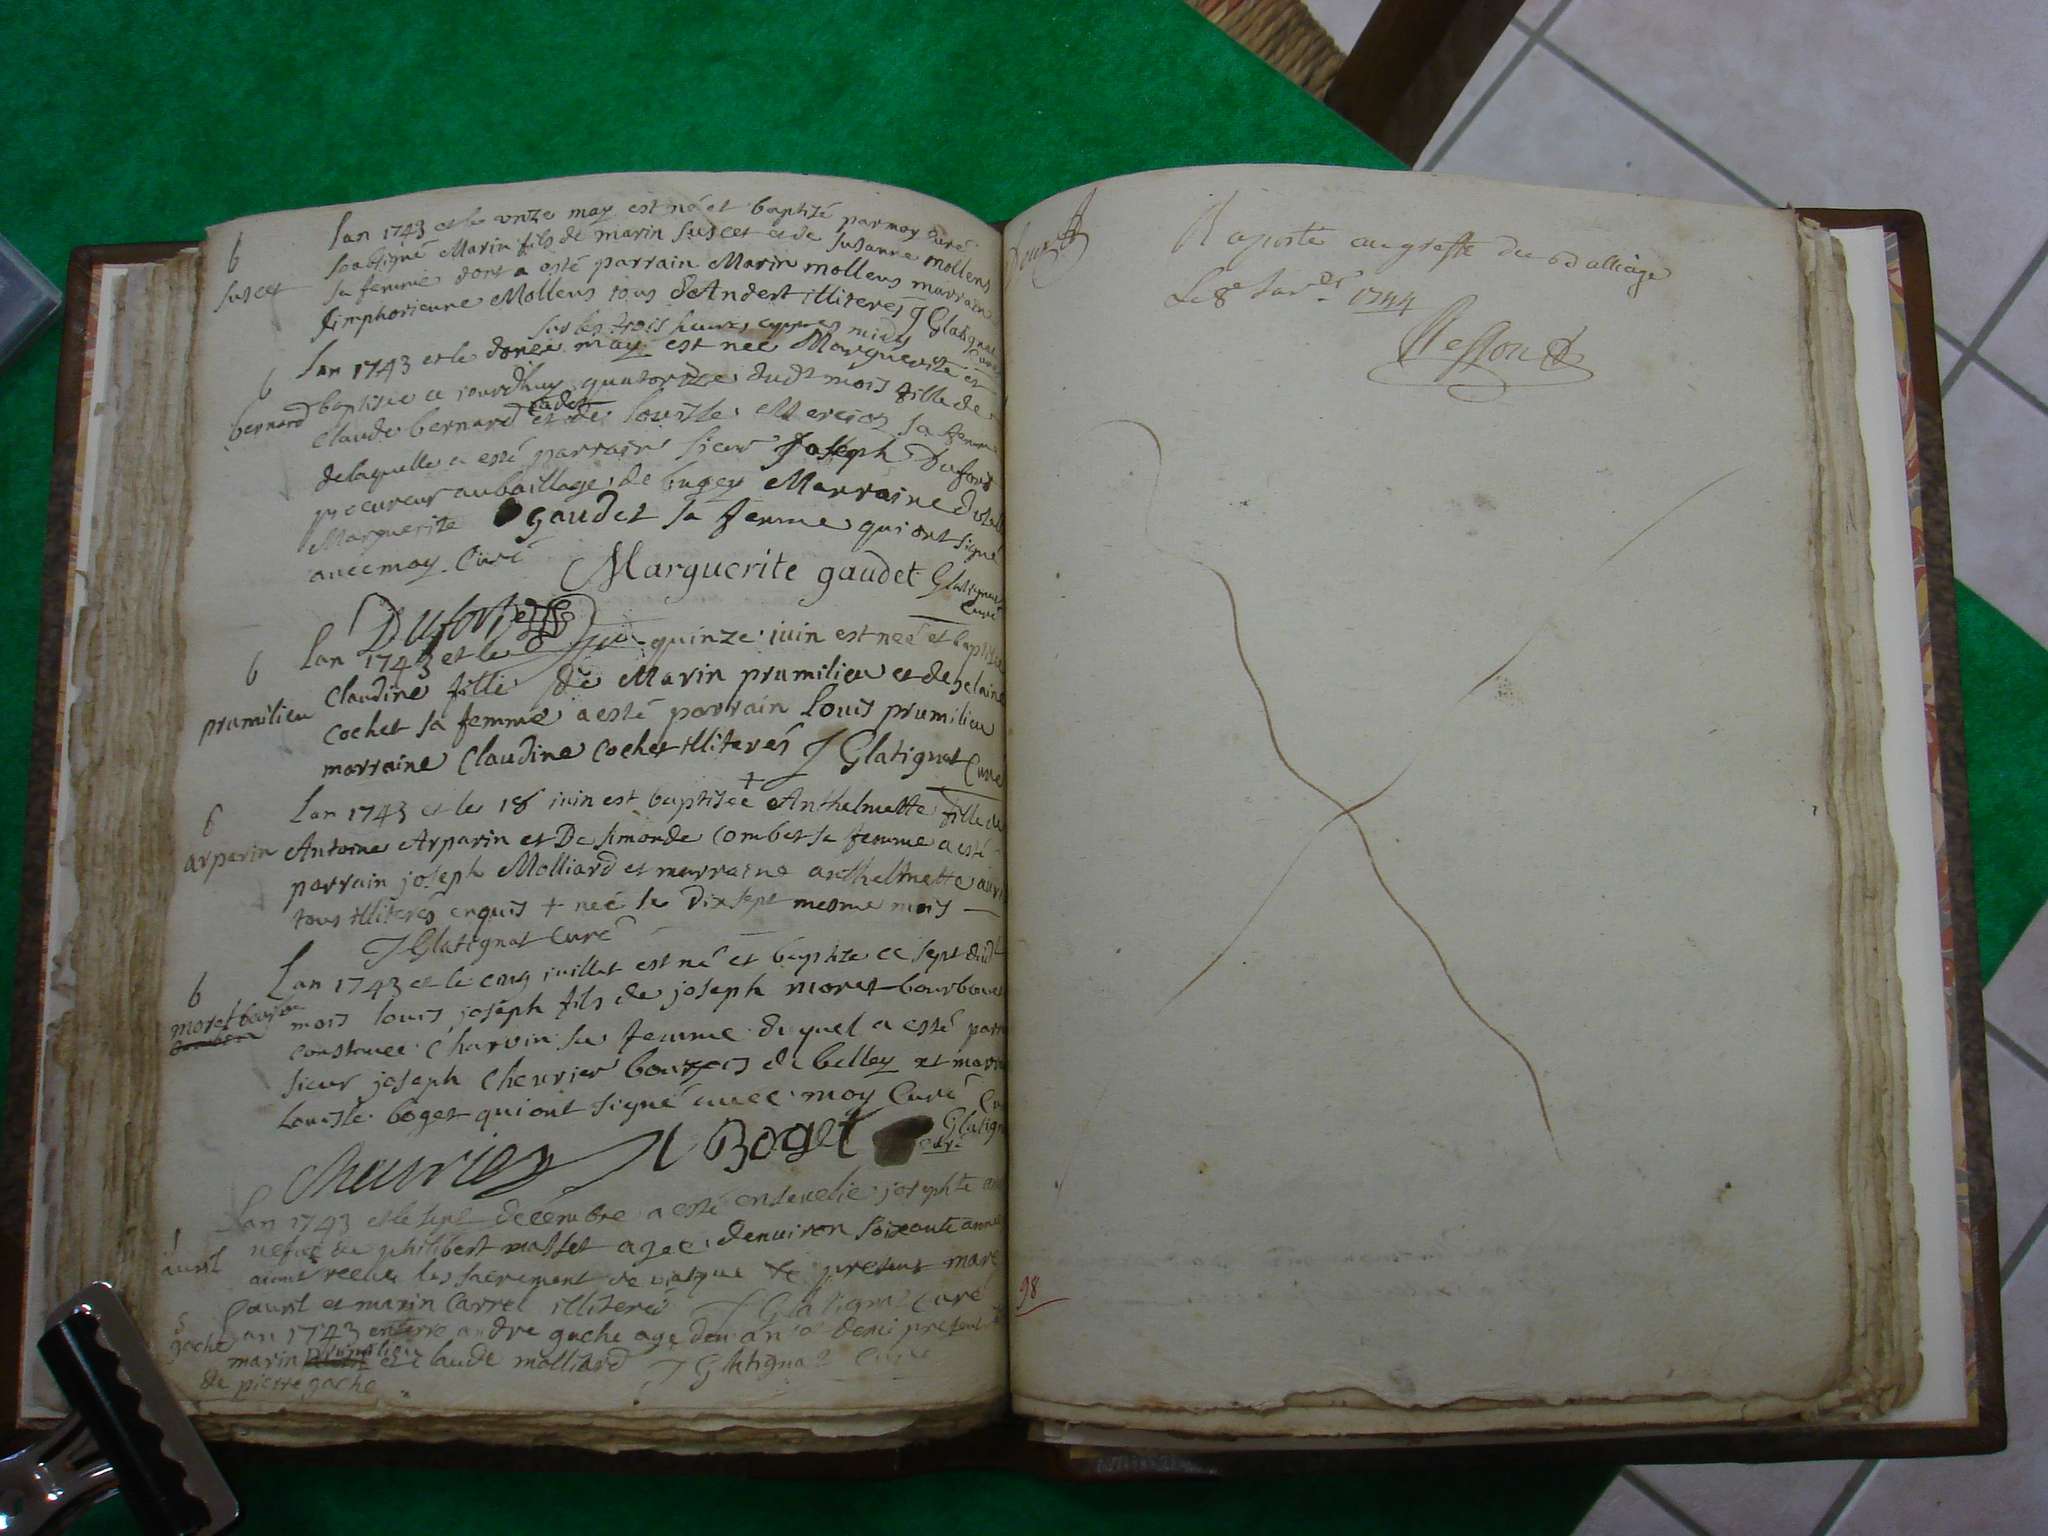 b
suscet
Lan 1743 et le unze may est né et baptizé par moy curé
soubsigné Marin fils de marin Suscet et de Susanne mollens
sa femme dont a esté parrain Marin mollens marraine
simphorienne Mollens tous d'Andert illiteres J Glatignat
Curé
sur les trois heures appres midy
b
bernard
Lan 1743 et le may est née Marguerite et
baptisée ce jourdhuy quatorze dudt mois fille de
Claude bernard cadet et de Louise Mercier sa femme
de laquelle a esté parrain sieur Joseph Dufort
procureur au bailliage de bugey Marraine
Marguerite gaudet sa femme qui ont signé
avec moy Curé
Marguerite gaudet Glatignat
Curé
Dufort
b
prumilieu
Lan 1743 et le quinze juin est née et baptisée
Claudine fille de Marin prumilieu et de helaine
Cochet sa femme a esté parrain Louis prumilieu
marraine Claudine Cochet illiterés J Glatignat Curé
b
arparin
Lan 1743 et le 18 juin est baptisée + Anthelmette fille de
Antoine Arparin et De Simonde Combet sa femme a esté
parrain joseph Molliard et marraine anthelmette
tous illiterés enquis + née le Dixsept mesme mois
J Glatignat Curé
b
moret bourbon
Lan 1743 et le cinq juillet est né et baptize ce sept dudt
mois louis joseph fils de joseph moret bourbon et
constance Charvin sa femme duquel a esté parrain
sieur joseph Chevrier bourgeois de belley et marraine
Louise boget qui ont signé avec moy Curé
Glatignat
curé
Chevrier L Boget
avril
Lan 1743 et le sept décembre a esté ensevelie josephte
vefve de philibert masset agée denviron soixante années
aiant receu les sacrement de viatique presens marc
avril et marin Carrel illiterés J Glatignat Curé
S
gache
an 1743 enterré andre gache agé dun an et demi presents
marin prumilieu et claude molliard J Glatignat Curé
de pierre gache
Raporté au greffe du bailliage
Le 8e Janer 1744
98